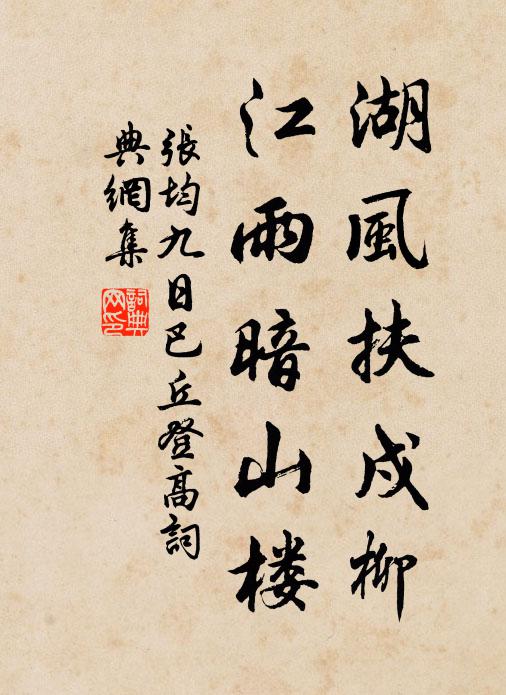 湖風扶戍柳
江雨暗山楼
張均九日巴丘登高詞
典網集
詞典
网印